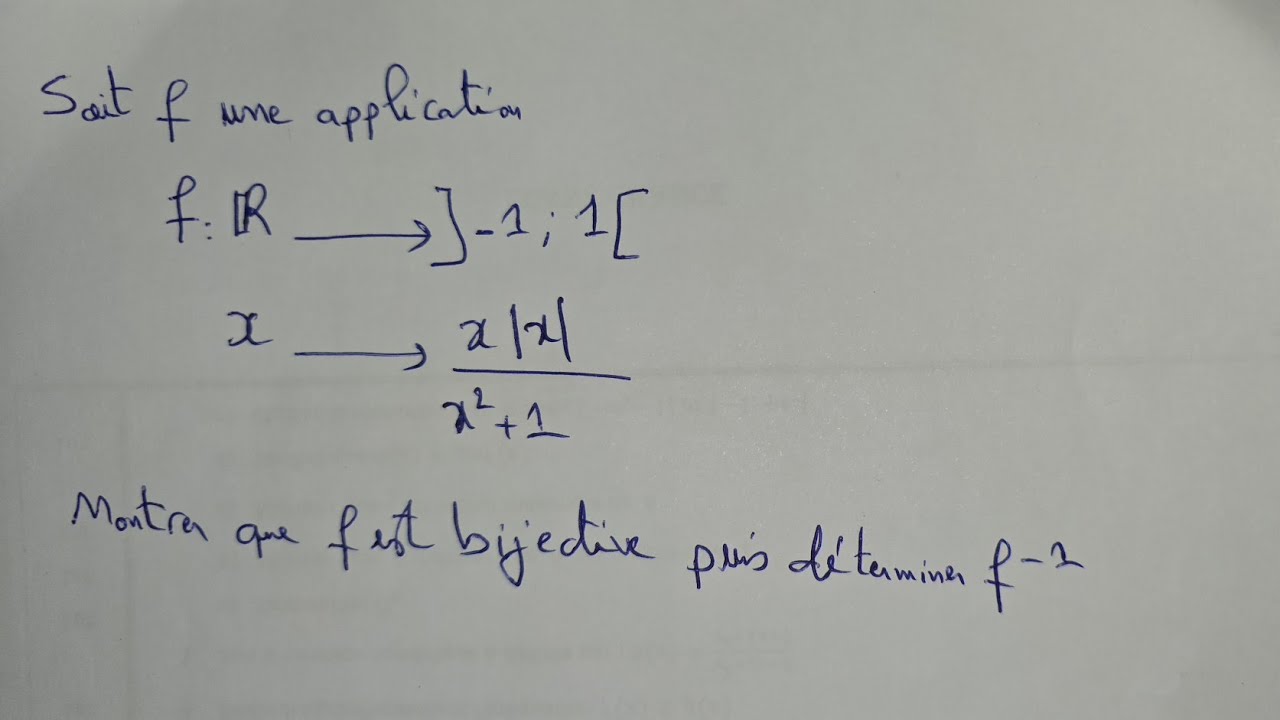 Soit f une application
f: ℝ ⟶ ]-1 ; 1[
x ⟶ x|x|
x²+1
Montrer que f est bijective puis déterminer f⁻¹